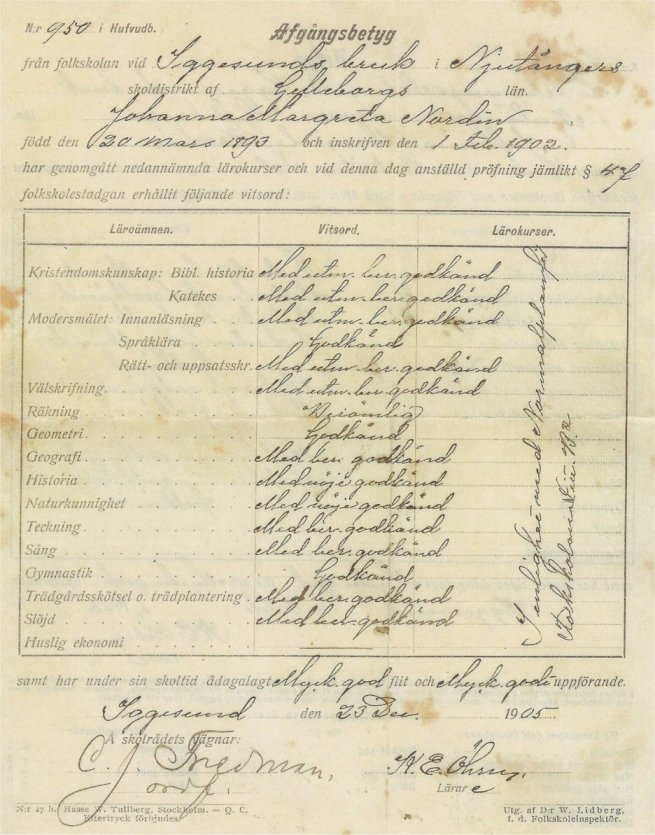 N:r 950 i Hufvudb.
Afgångsbetyg
från folkskolan vid Iggesunds bruk i Njutångers
skoldistrikt af Gefleborgs län.
Johanna Margreta Nordin
född den 20 mars 1893 och inskrifven den 1 Feb. 1902
har genomgått nedannämnda lärokurser och vid denna dag anställd pröfning jämlikt § 47
folkskolestadgan erhållit följande vitsord:
Läroämnen. Vitsord. Lärokurser.
Kristendomskunskap: Bibl. historia Med utm. ber. godkänd
Katekes Med utm. ber. godkänd
Modersmålet: Innanläsning Med utm. ber. godkänd
Språklära Godkänd
Rätt- och uppsatsskr. Med utm. ber. godkänd
Välskrifning Med utm. ber. godkänd
Räkning Berömlig
Geometri Godkänd
Geografi Med ber. godkänd
Historia Med nöje godkänd
Naturkunnighet Med nöje godkänd
Teckning Med ber. godkänd
Sång Med ber. godkänd
Gymnastik Godkänd
Trädgårdsskötsel o. trädplantering Med ber. godkänd
Slöjd Med ber. godkänd
Huslig ekonomi
I enlighet med Normalplan för
Folkskolan
samt har under sin skoltid ådagalagt Myck. god flit och Myck. godt uppförande.
Iggesund den 23 Dec. 1905
Å skolrådets vägnar:
C. J. Fredman,
ordf.
K. E. Öhrn,
Lärare
N:r 27 h. Hasse W. Tullberg, Stockholm. — Q. C.
Eftertryck förbjudes.
Utg. af D:r W. Lidberg.
f. d. Folkskoleinspektör.